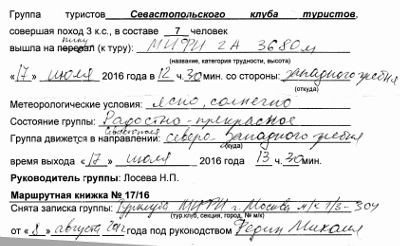 Группа туристов Севастопольского клуба туристов,
совершая поход 3 к.с., в составе 7 человек
пику
вышла на перевал (к туру): МИФИ 2А 3680м
(название, категория трудности, высота)
«17» июля 2016 года в 12 ч. 30 мин. со стороны: западного гребня
(откуда)
Метеорологические условия: ясно, солнечно
Состояние группы: Радостно-прекрасное
Группа движется в направлении: северо-западного гребня
(куда)
время выхода «17» июля 2016 года 13 ч. 30 мин.
Руководитель группы: Лосева Н.П.
Маршрутная книжка № 17/16
Снята записка группы: Турклуба МИФИ г. Москва м/к 1/3-304
(тур.клуб, секция, город, № м/к)
от «8» августа года под руководством Федин Михаил